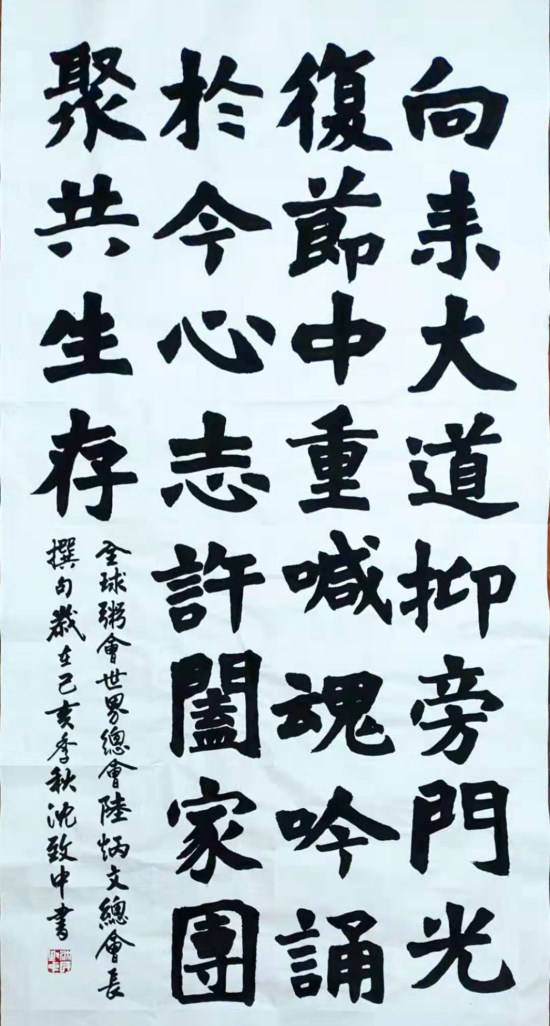 向来大道抑旁門光
復節中重喊魂吟誦
於今心志許闔家團
聚共生存
全球粥會世界總會陸炳文總會長
撰句歲在己亥季秋沈致中書